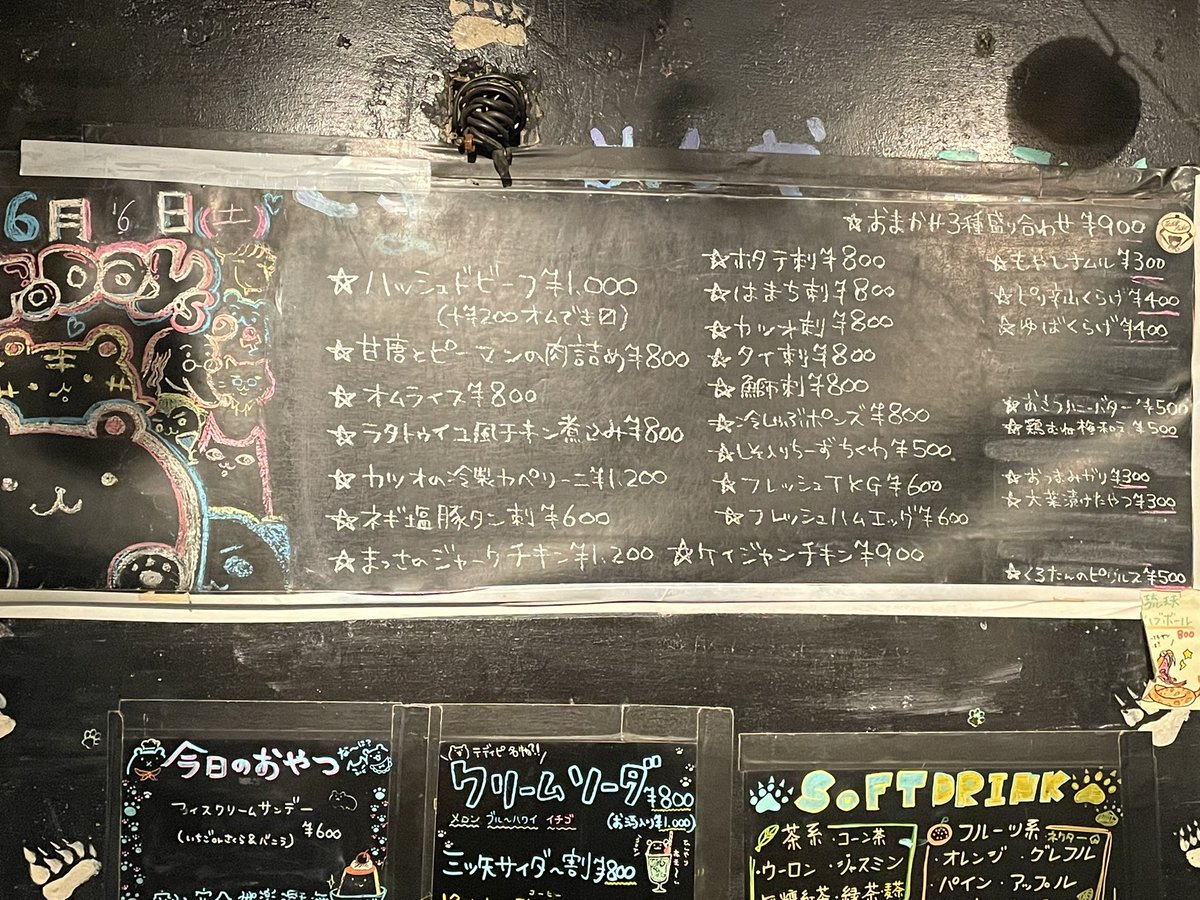 6月6日(土)
☆ハッシュドビーフ¥1,000
(+¥200オムでき〼)
☆甘唐とピーマンの肉詰め¥800
☆オムライス¥800
☆ラタトゥイユ風チキン煮込み¥800
☆カツオの冷製カペリーニ¥1,200
☆ネギ塩豚タン刺¥600
☆まっさのジャークチキン¥1,200
☆ケイジャンチキン¥900
☆おまかせ3種盛り合わせ¥900
☆ホタテ刺¥800
☆はまち刺¥800
☆カツオ刺¥800
☆タイ刺¥800
☆鰤刺¥800
☆冷しゃぶポンズ¥800
☆しそ入りちーずちくわ¥500
☆フレッシュTKG¥600
☆フレッシュハムエッグ¥600
☆もやしナムル¥300
☆ピリ辛山くらげ¥400
☆ゆばくらげ¥400
☆おさつハニーバター¥500
☆鶏むね梅和え¥500
☆おつまみガリ¥300
☆大葉漬けたやつ¥300
☆くろたんのピクルス¥500
琉球
ハブボール
800
今日のおやつ
アイスクリームサンデー
¥600
テディピ名物!!
クリームソーダ¥800
メロン ブルーハワイ イチゴ
(お酒入り¥1,000)
三ツ矢サイダー割¥800
コーヒー
SOFTDRINK
茶系・コーン茶
・ウーロン・ジャスミン
フルーツ系
ネクター
・オレンジ・グレフル
・パイン・アップル